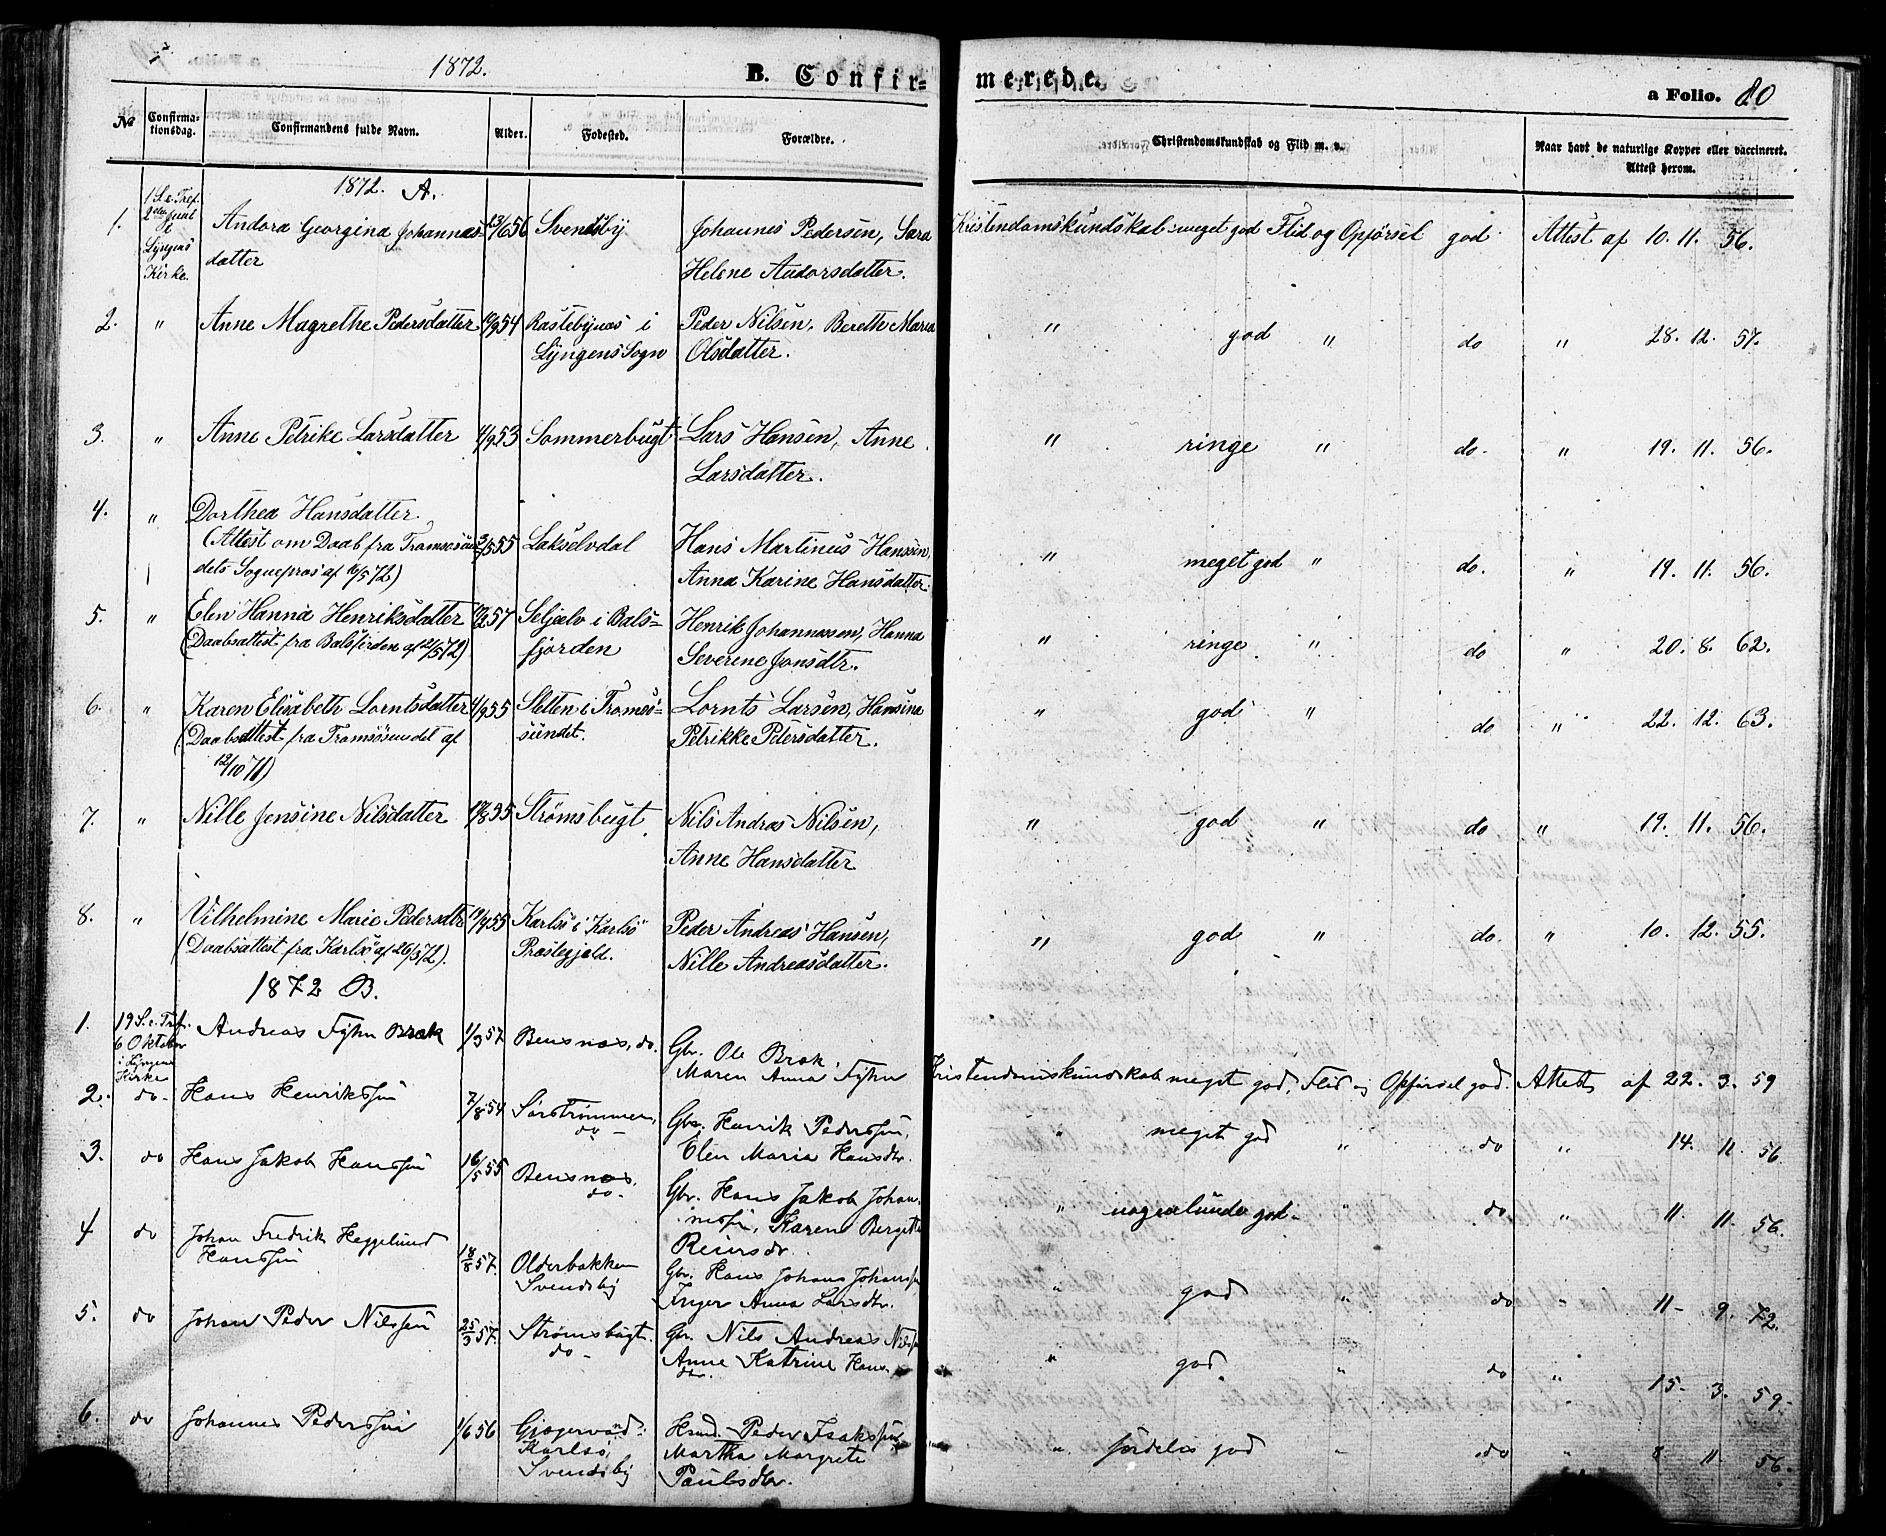 1872.
B. Confirmerede.
a Folio. 80
No
Confirmationsdag.
Confirmandens fulde Navn.
Alder.
Fødested.
Forældre.
Christendomskundskab og Flid m. v.
Naar havt de naturlige Kopper eller vaccineret.
Attest herom.
1872. A.
1. 1 S. e. Tref. 2den Juni i Lyngens Kirke. Andora Georgina Johannas- 13/6 56 Svendsby Johannes Pedersen, Sara Kristendomskundskab meget god Flid og Opførsel god Attest af 10. 11. 56.
datter Helene Andorsdatter.
2. " Anne Magrethe Pedersdatter 54 Rastebynæs i Peder Nilsen, Berethe Maria " god " do " 28. 12. 57.
Lyngens Sogn Olsdatter.
3. " Anne Petrike Larsdatter 4/9 53 Sommerbugt Lars Hansen, Anne " ringe " do. " 19. 11. 56.
Larsdatter.
4. " Dorthea Hansdatter.
(Attest om Daab fra Tromsøsun- 55 Lakselvdal Hans Martinus Hanssen, " meget god " do. " 19. 11. 56.
dets Sognepræs af 16/5 72) Anna Karine Hansdatter.
5. " Elen Hanna Henriksdatter 57 Seljelv i Bals- Henrik Johannessen, Hanna " ringe " do " 20. 8. 62.
(Daabsattest fra Balsfjorden af 21/5 72) fjorden Severene Jonsdtr.
6. " Karen Elisabeth Lorntsdatter 4/9 55 Sletten i Tromsø- Lornts Larsen, Hansina " god " do " 22. 12. 63.
(Daabsattest fra Tromsøsundet af sundet. Petrikke Petersdatter.
12/10 71)
7. " Nille Jensine Nilsdatter 55 Strømsbugt Nils Andras Nilsen, " god " do " 19. 11. 56.
Anne Hansdatter
8. " Vilhelmine Marie Pedersdtr 55 Karlsö i Karlsö Peder Andreas Hansen, " god " do. " 10. 12. 55.
(Daabsattest fra Karlsö af 26/3 72). Præstegjeld. Nille Andreasdatter.
1872 B.
1. 19 S. e. Tref. 6 Oktober i Lyngens Kirke Andreas Fyhn Brok 1/3 57 Bensnæs, do. Gbr. Ole Brok,
Maren Anna Fyhn Kristendomskundskab meget god, Flid og Opførsel god. Attest af 22. 3. 59
2. do. Hans Henrikssen 7/8 54 Sørstrømmen, Gbr. Henrik Pederssen, " meget god " do " 14. 11. 56
do - Elen Maria Hansdtr.
3. do Hans Jakob Hanssen 16/5 55 Bensnæs, Gbr. Hans Jakob Johan-
do - nessen, Karen Bergette " nogenlunde god " do " 11. 11. 56.
Reiersdtr.
4 do Johan Fredrik Heggelund
Hanssen 18/8 57. Olderbakken Gbr. Hans Johans Johanssen
Svendsby Inger Anna Larsdtr. " god " do " 11- 9. 72.
5. do Johan Peder Nilssen 25/3 57. Strømsbugt. Gbr. Nils Andreas Nilssen
do - Anne Katrine Hans " god. " do " 15- 3. 59.
dtr.
6. do Johannes Pederssen 1/6 56 Gjøgervand: Husmd. Peder Isakssen
Karlsö, Martha Margrete " særdeles god - do " 8 11 56.
Svendsby Paulsdtr.